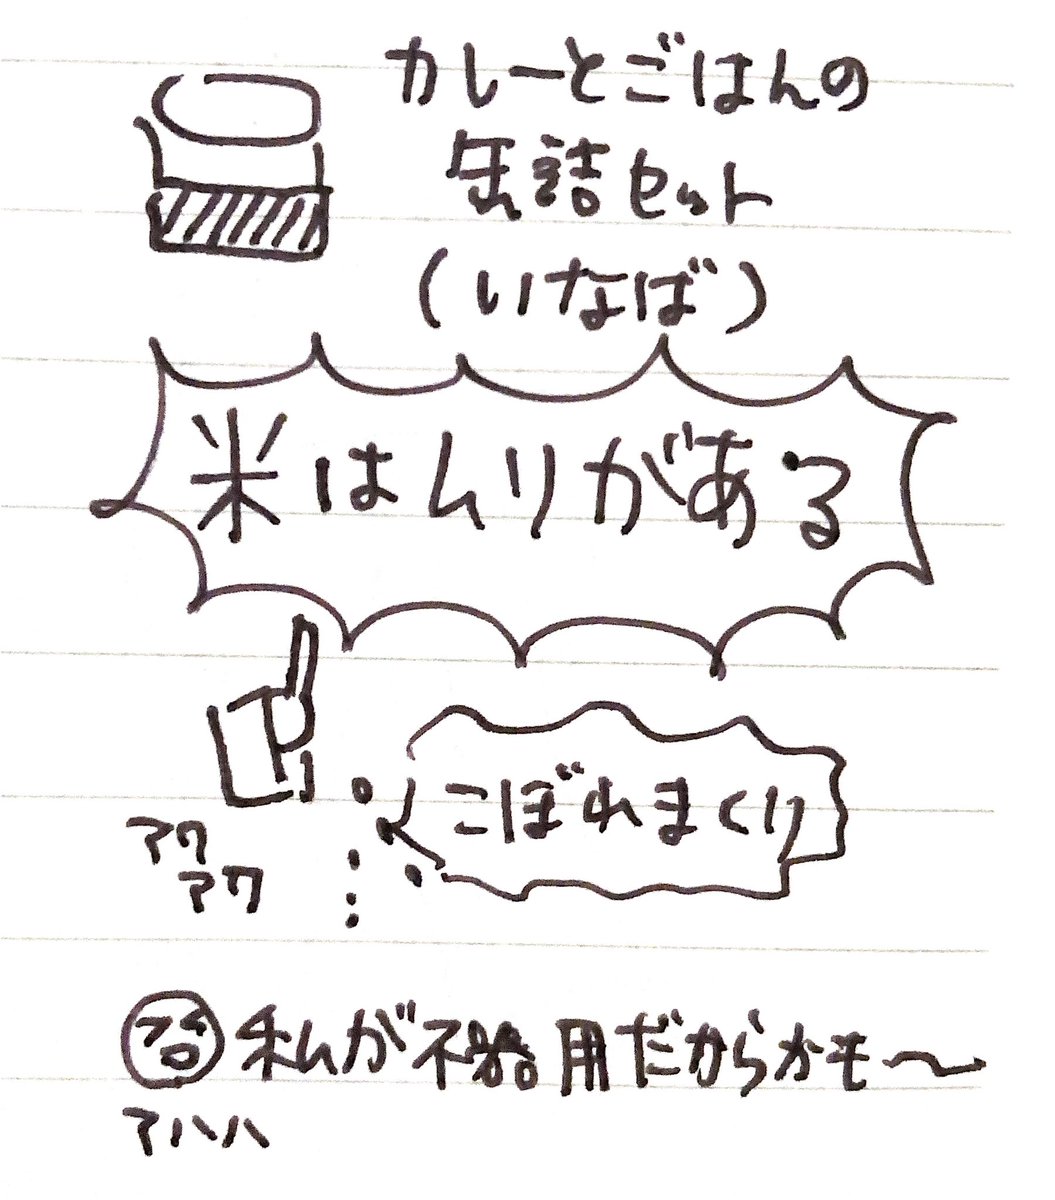 カレーとごはんの
缶詰セット
(いなば)
米はムリがある
こぼれまくり
アワ
アワ
私が不器用だからかも〜
アハハ